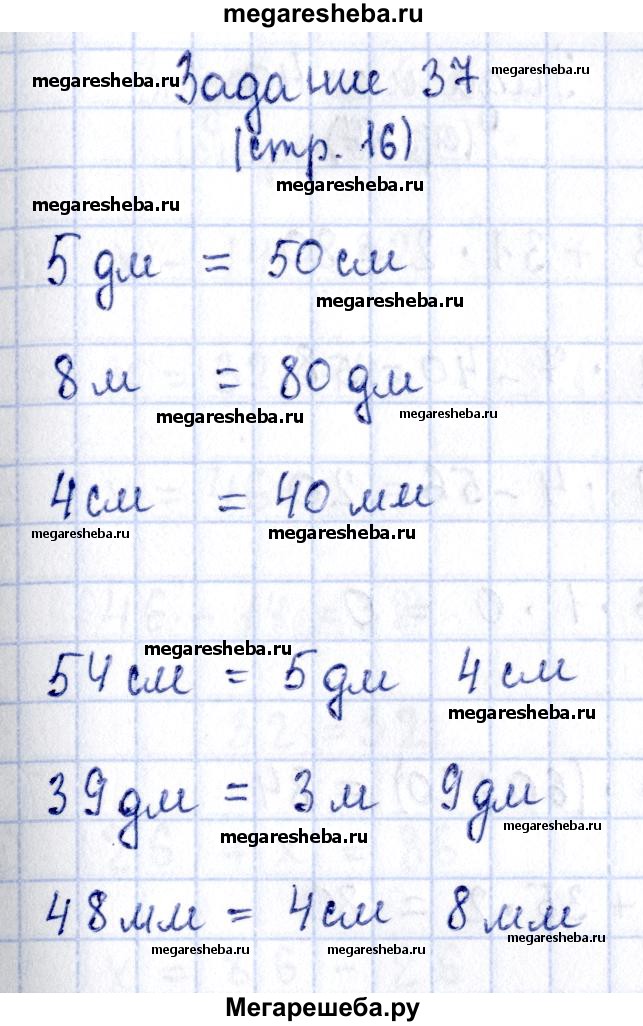 megaresheba.ru
megaresheba.ru Задание 37 megaresheba.ru
(стр. 16)
megaresheba.ru
megaresheba.ru
5 дм = 50 см
megaresheba.ru
8 м = 80 дм
megaresheba.ru megaresheba.ru
4 см = 40 мм
megaresheba.ru megaresheba.ru
megaresheba.ru
54 см = 5 дм 4 см
megaresheba.ru
39 дм = 3 м 9 дм
megaresheba.ru megaresheba.ru
48 мм = 4 см 8 мм
megaresheba.ru megaresheba.ru megaresheba.ru
Мегарешеба.ру